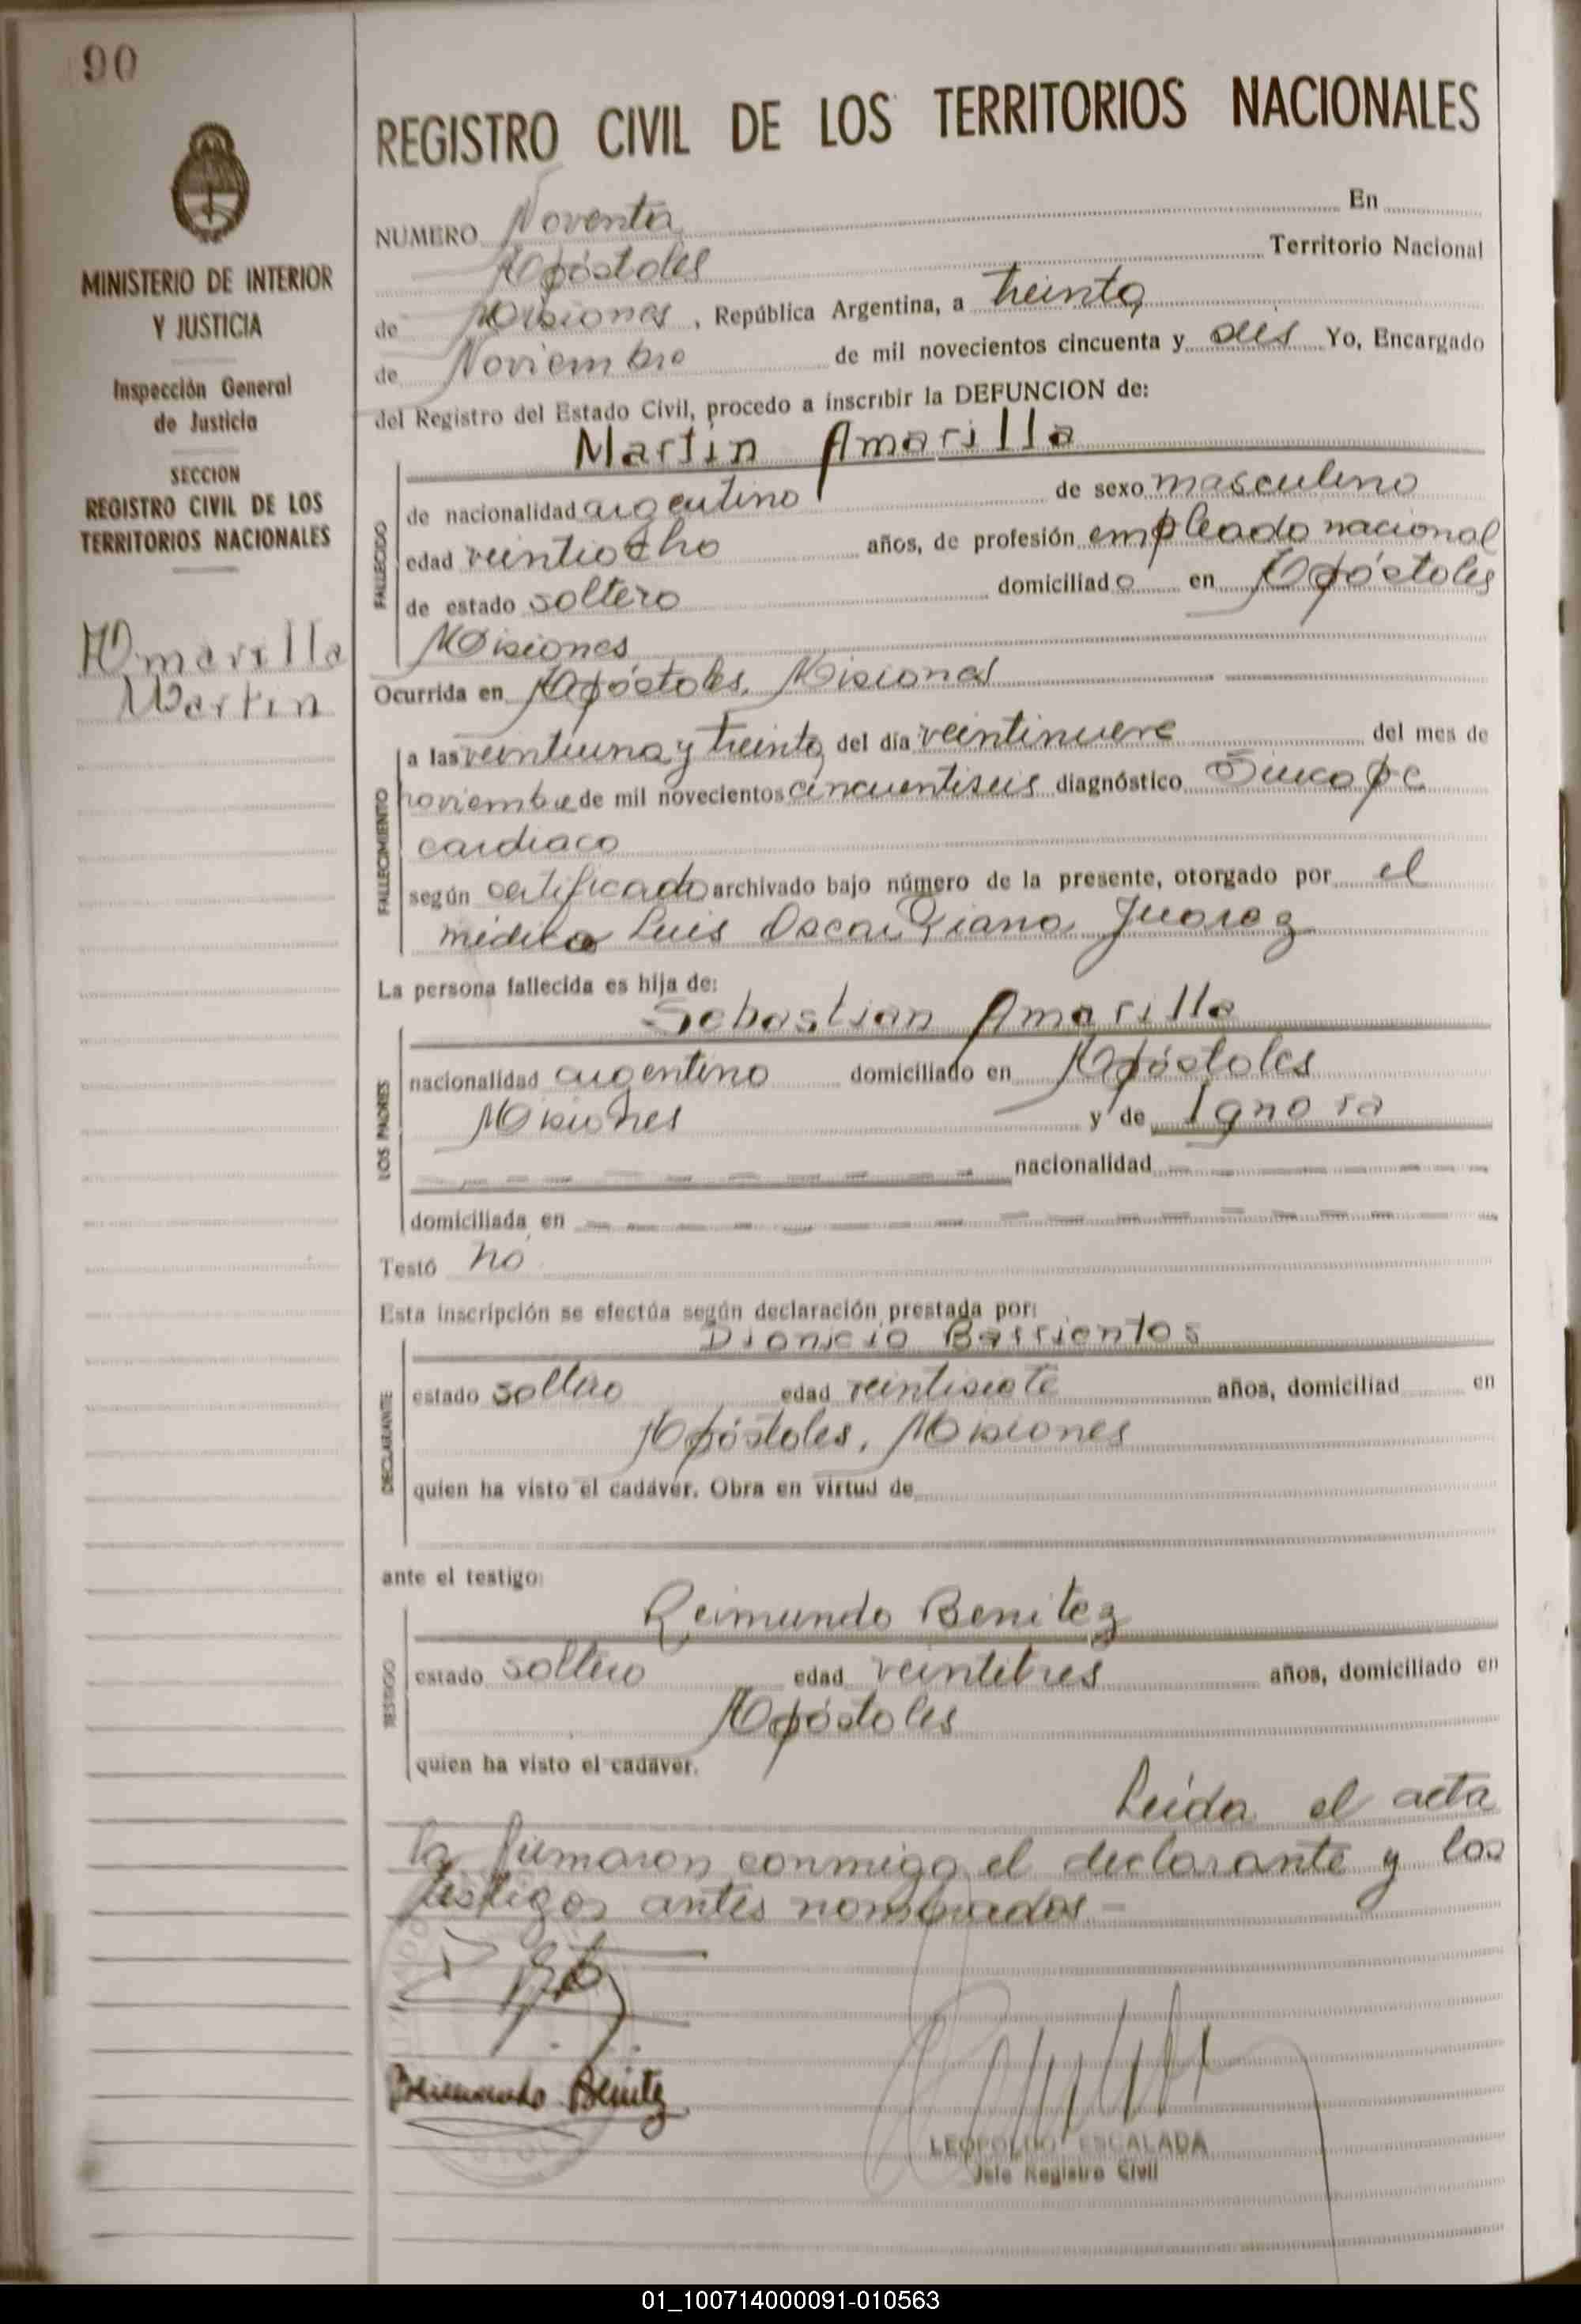 90
REGISTRO CIVIL DE LOS TERRITORIOS NACIONALES
MINISTERIO DE INTERIOR
Y JUSTICIA
Inspección General
de Justicia
SECCION
REGISTRO CIVIL DE LOS
TERRITORIOS NACIONALES
Amarilla
Martin
NUMERO Noventa En
Apóstoles Territorio Nacional
de Misiones, República Argentina, a treinta
de Noviembre de mil novecientos cincuenta y seis Yo, Encargado
del Registro del Estado Civil, procedo a inscribir la DEFUNCION de:
Martin Amarilla
FALLECIDO
de nacionalidad argentino de sexo masculino
edad veintiocho años, de profesión empleado nacional
de estado soltero domiciliado en Apóstoles
Misiones
Ocurrida en Apóstoles, Misiones
FALLECIMIENTO
a las veintiuna y treinta del día veintinueve del mes de
noviembre de mil novecientos cincuentiseis diagnóstico Sincope
cardiaco
según certificado archivado bajo número de la presente, otorgado por el
médico Luis Oscar Juarez
La persona fallecida es hija de:
Sebastian Amarilla
LOS PADRES
nacionalidad argentino domiciliado en Apóstoles
Misiones y de Ignora
nacionalidad
domiciliada en
Testó no
Esta inscripción se efectúa según declaración prestada por:
Dionicio Barrientos
DECLARANTE
estado soltero edad veintisiete años, domiciliad en
Apóstoles, Misiones
quien ha visto el cadáver. Obra en virtud de
ante el testigo:
Reimundo Benitez
TESTIGO
estado soltero edad veintitres años, domiciliado en
Apóstoles
quien ha visto el cadáver.
Leída el acta
la firmaron conmigo el declarante y los
testigos antes nombrados.-
Reimundo Benitez
LEOPOLDO ESCALADA
Jefe Registro Civil
01_100714000091-010563